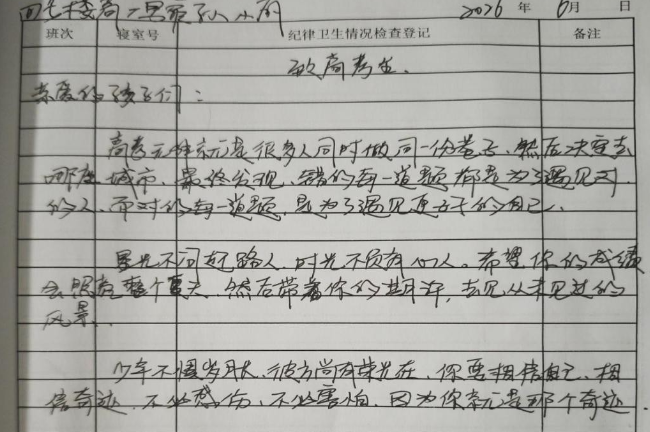 四号楼高 男 2026年6月 日
班次 寝室号 纪律卫生情况检查登记 备注
致高考生.
亲爱的孩子们：
高考无非就是很多人同时做同一份卷子、然后决定去
哪座城市、最终发现、错的每一道题都是为了遇见对
的人、而对的每一道题，是为了遇见更好的自己.
星光不问赶路人、时光不负有心人。希望你的成绩
会照亮整个夏天、然后带着你的期许，去见从未见过的
风景.
少年不惧岁月长、彼方尚有荣光在、你要相信自己、相
信奇迹、不必感伤、不必害怕、因为你就是那个奇迹